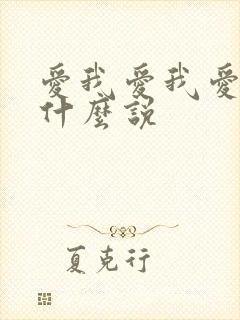 愛我愛我愛
什麼說
夏克行